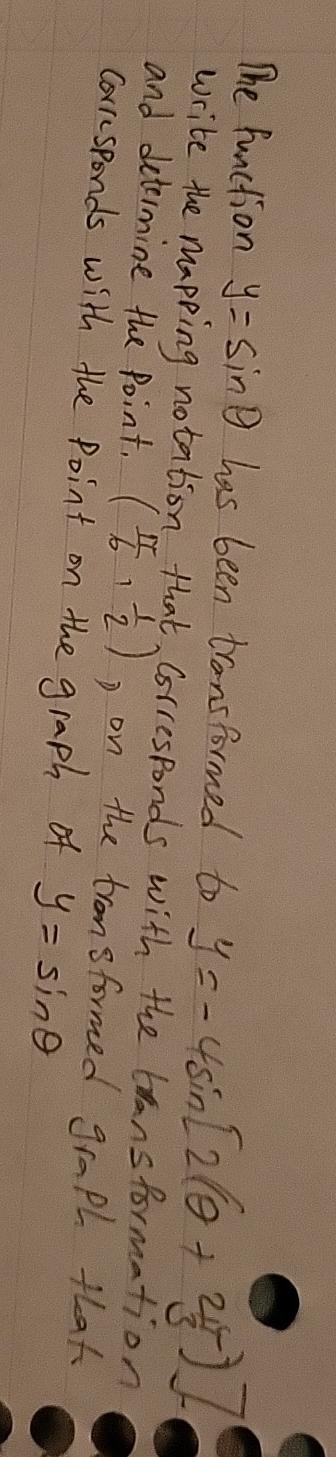 The function y = sinθ has been transformed to y = -4sin[2(θ + 2π/3)]
write the mapping notation that corresponds with the transformation
and determine the point. (π/6, 1/2), on the transformed graph that
corresponds with the point on the graph of y = sinθ